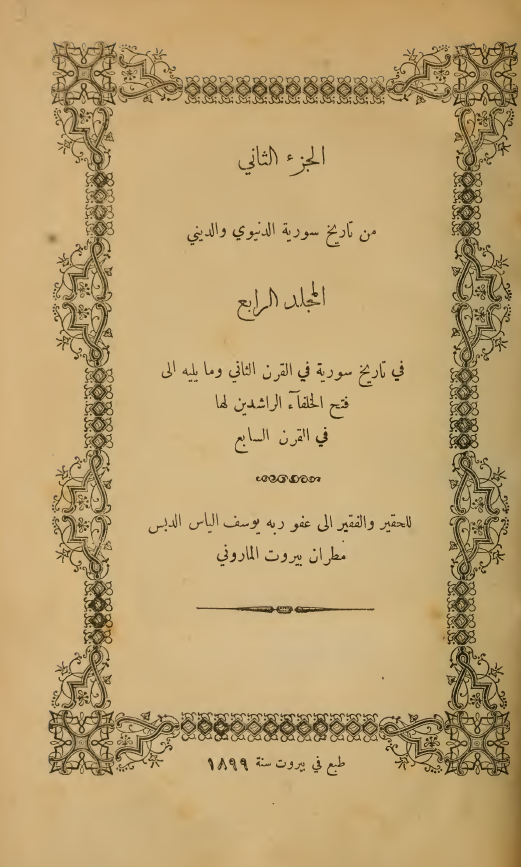 الجزء الثاني
من تاريخ سورية الدنيوي والديني
المجلد الرابع
في تاريخ سورية في القرن الثاني وما يليه الى
فتح الخلفآء الراشدين لها
في القرن السابع
للحقير والفقير الى عفو ربه يوسف الياس الدبس
مطران بيروت الماروني
طبع في بيروت سنة ١٨٩٩